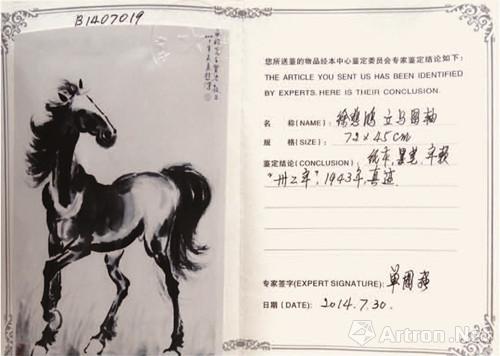 B1407019
您所送鉴的物品经本中心鉴定委员会专家鉴定结论如下:
THE ARTICLE YOU SENT US HAS BEEN IDENTIFIED
BY EXPERTS. HERE IS THEIR CONCLUSION.
名 称(NAME): 徐悲鸿 立马图轴
规 格(SIZE): 72×45cm
鉴定结论(CONCLUSION): 纸本,墨笔,年款
"卅二年",1943年,真迹.
专家签字(EXPERT SIGNATURE): 单国强
日期(DATE): 2014.7.30.
Artron.Net